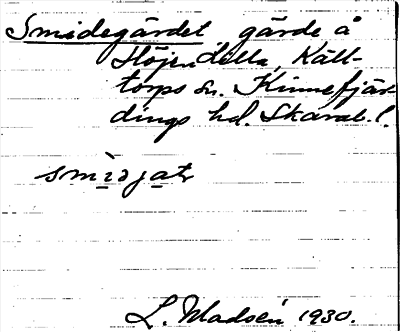 Smidegärdet gärde å
Höjen lilla, Käll-
torps sn. Kinnefjär-
dings hd. Skarab. l.
smìdjat
L. Madsén 1930.